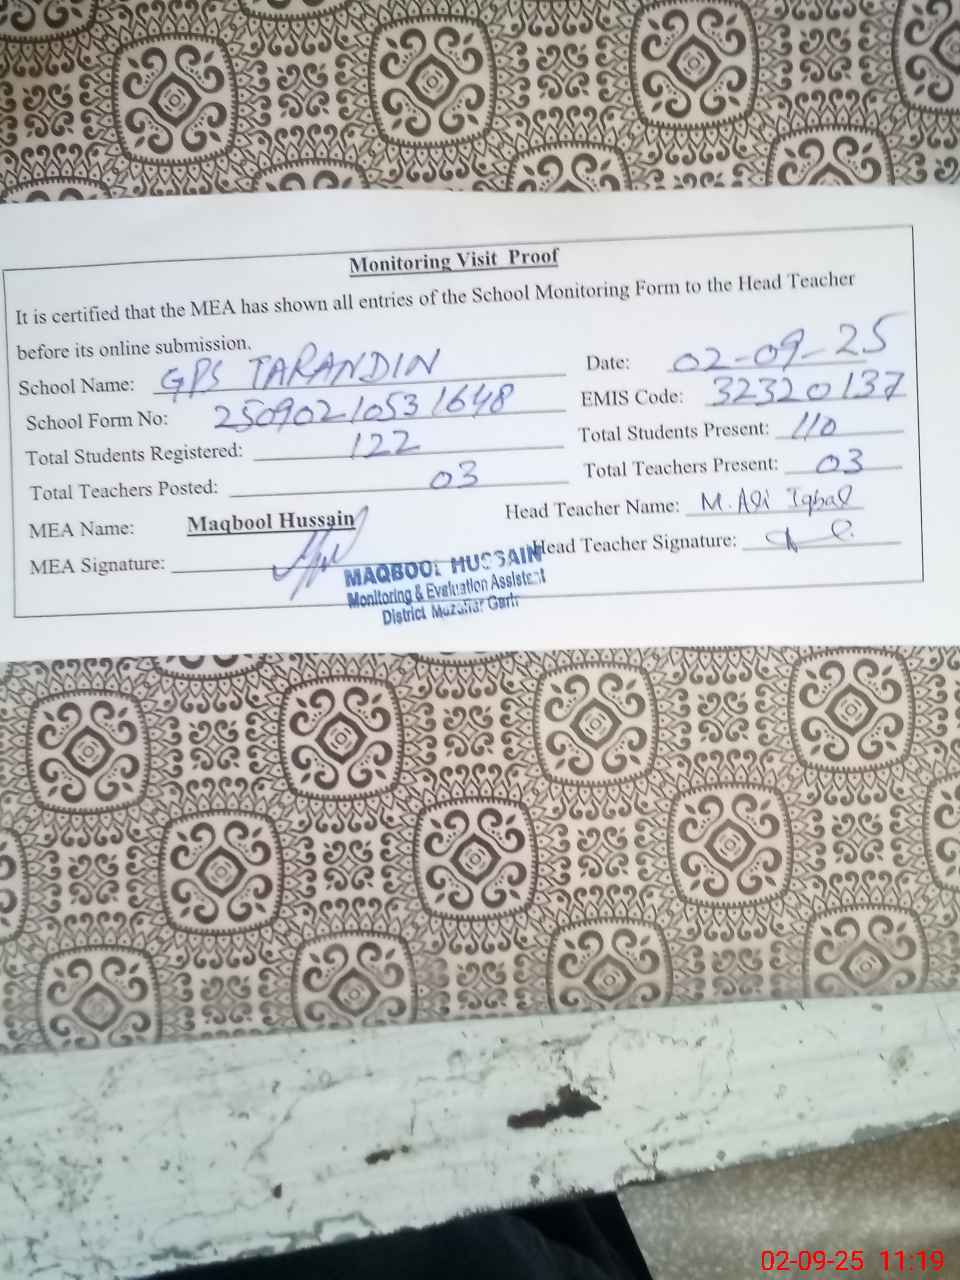 Monitoring Visit Proof
It is certified that the MEA has shown all entries of the School Monitoring Form to the Head Teacher
before its online submission.
School Name: GPS TARANDIN Date: 02-09-25
School Form No: 25090210531648 EMIS Code: 32320137
Total Students Registered: 122 Total Students Present: 110
Total Teachers Posted: 03 Total Teachers Present: 03
MEA Name: Maqbool Hussain Head Teacher Name: M. Ali Iqbal
MEA Signature: Head Teacher Signature:
MAQBOOL HUSSAIN
Monitoring & Evaluation Assistent
District Muzaffar Garh
02-09-25 11:19